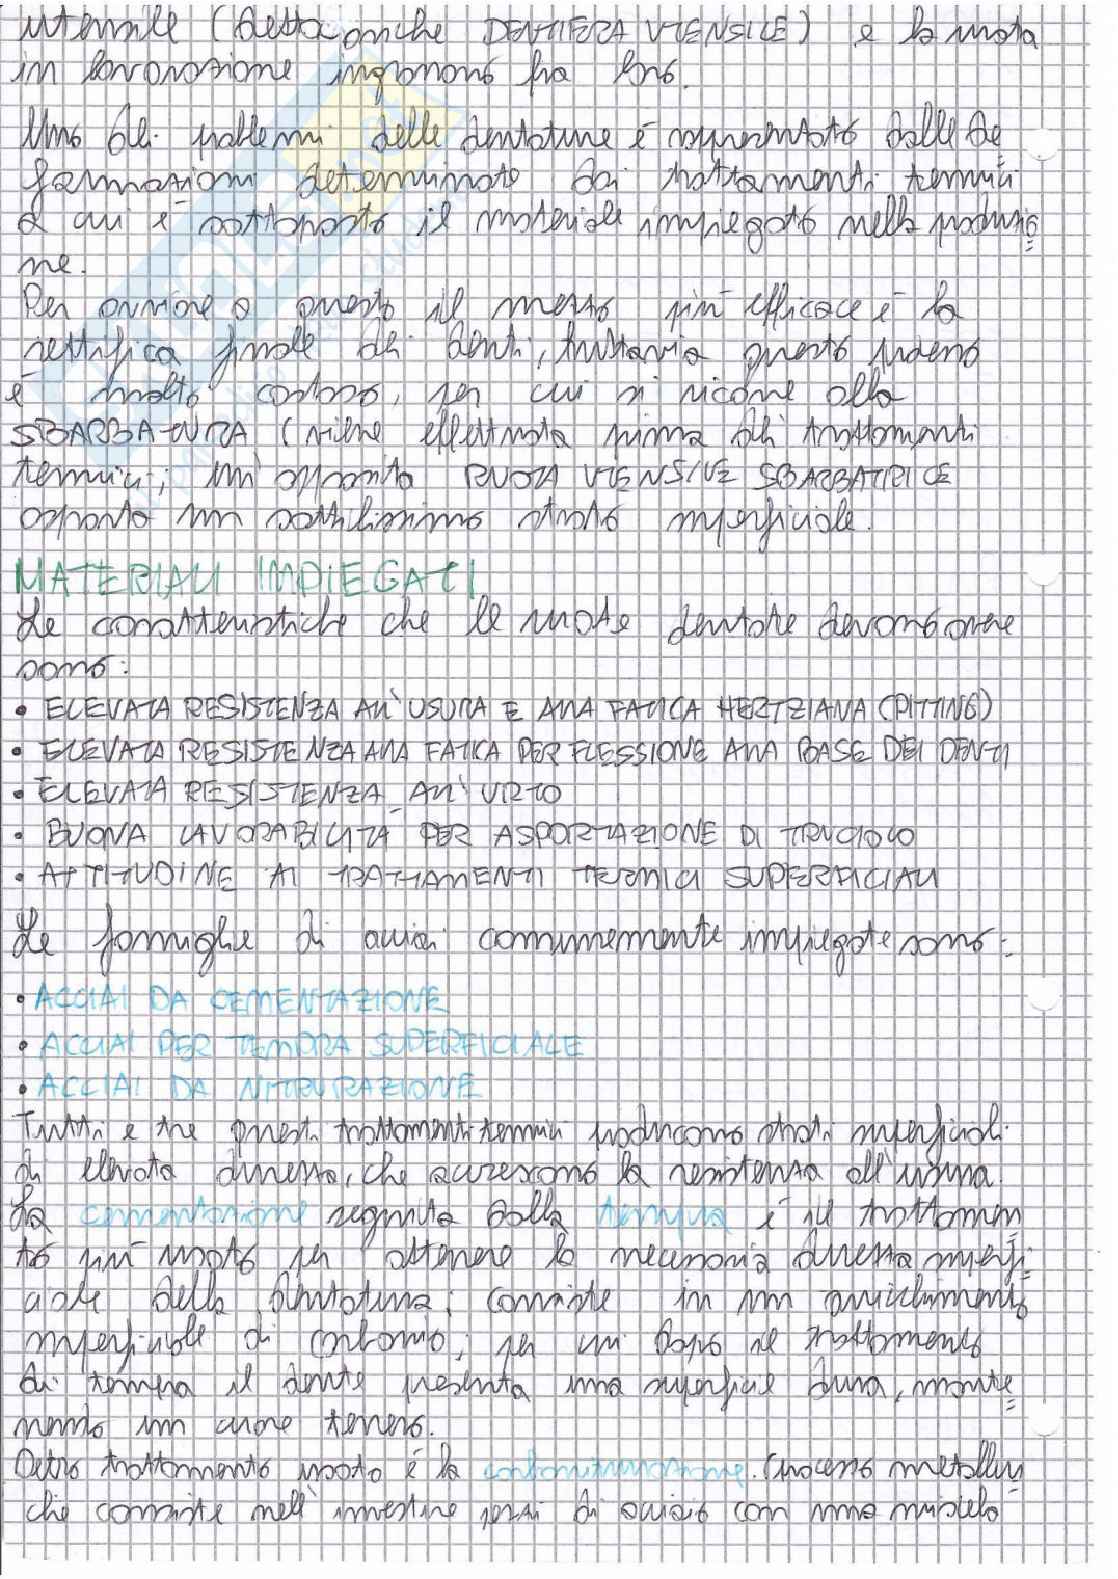 utensile (detta anche DENTIERA UTENSILE) e la ruota
in lavorazione ingranano fra loro.
Uno dei problemi delle dentature è rappresentato dalle de
formazioni determinate dai trattamenti termici
a cui è sottoposto il materiale impiegato nella produzio=
ne.
Per ovviare a questo il mezzo più efficace è la
rettifica finale dei denti, tuttavia questo processo
è molto costoso, per cui si ricorre alla
SBARBATURA (viene effettuata prima dei trattamenti
termici; un'apposita RUOTA UTENSILE SBARBATRICE
asporta un sottilissimo strato superficiale.
MATERIALI IMPIEGATI
Le caratteristiche che le ruote dentate devono avere
sono:
• ELEVATA RESISTENZA ALL'USURA E ALLA FATICA HERTZIANA (PITTING)
• ELEVATA RESISTENZA ALLA FATICA PER FLESSIONE ALLA BASE DEI DENTI
• ELEVATA RESISTENZA ALL'URTO
• BUONA LAVORABILITÀ PER ASPORTAZIONE DI TRUCIOLO
• ATTITUDINE AI TRATTAMENTI TERMICI SUPERFICIALI
Le famiglie di acciai comunemente impiegate sono:
• ACCIAI DA CEMENTAZIONE
• ACCIAI PER TEMPRA SUPERFICIALE
• ACCIAI DA NITRURAZIONE
Tutti e tre questi trattamenti termici producono strati superficiali
di elevata durezza, che accrescono la resistenza all'usura.
La cementazione seguita dalla tempra è il trattamen
to più usato per ottenere la necessaria durezza superfi=
ciale della dentatura; consiste in un arricchimento
superficiale di carbonio, per cui dopo il trattamento
di tempra il dente presenta una superficie dura, mante=
nendo un cuore tenero.
Altro trattamento usato è la carbonitrurazione. (processo metallur=
che consiste nell'investire pezzi di acciaio con una miscela